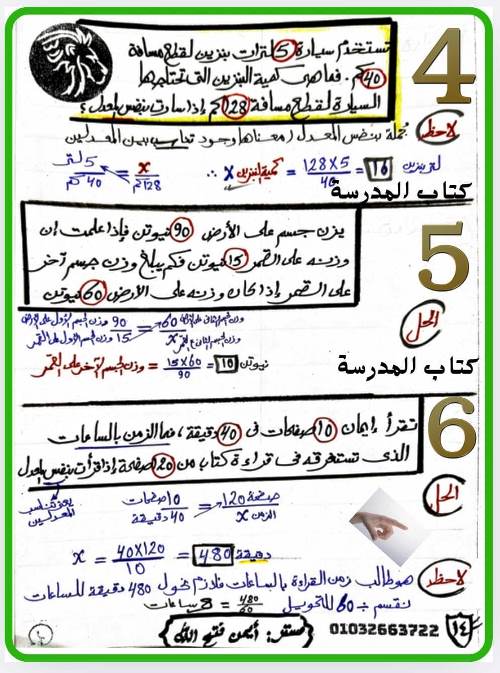 4
تستخدم سيارة 5 لترات بنزين لقطع مسافة
40 كم. فما هي كمية البنزين التي تحتاجها
السيارة لقطع مسافة 128 كم إذا سارت بنفس المعدل ؟
لاحظ
جملة بنفس المعدل ( معناها وجود تناسب بين المعدلين
5 لتر / 40 كم = x / 128 كم ∴ x كمية البنزين = 128×5 / 40 = 16 لتر بنزين
كتاب المدرسة
5
يزن جسم على الأرض 90 نيوتن فإذا علمت أن
وزنه على القمر 15 نيوتن فكم يبلغ وزن جسم آخر
على القمر إذا كان وزنه على الأرض 60 نيوتن
الحل
وزن الجسم الأول على الأرض 90 / وزن الجسم الأول على القمر 15 = 60 وزن الجسم الثاني على الأرض / x وزن الجسم الثاني على القمر
وزن الجسم الآخر على القمر = 15×60 / 90 = 10 نيوتن
كتاب المدرسة
6
تقرأ إيمان 10 صفحات في 40 دقيقة ، فما الزمن بالساعات
الذي تستغرقه في قراءة كتاب من 120 صفحة إذا قرأت بنفس المعدل
الحل
10 صفحات / 40 دقيقة = 120 صفحة / x الزمن
تناسب
المعدلين
x = 40×120 / 10 = 480 دقيقة
لاحظ
هو طالب زمن القراءة بالساعات فلازم نحول 480 دقيقة للساعات
نقسم ÷ 60 للتحويل 480/60 = 8 ساعات
مستر : أيمن فتح الله
01032663722
١٤